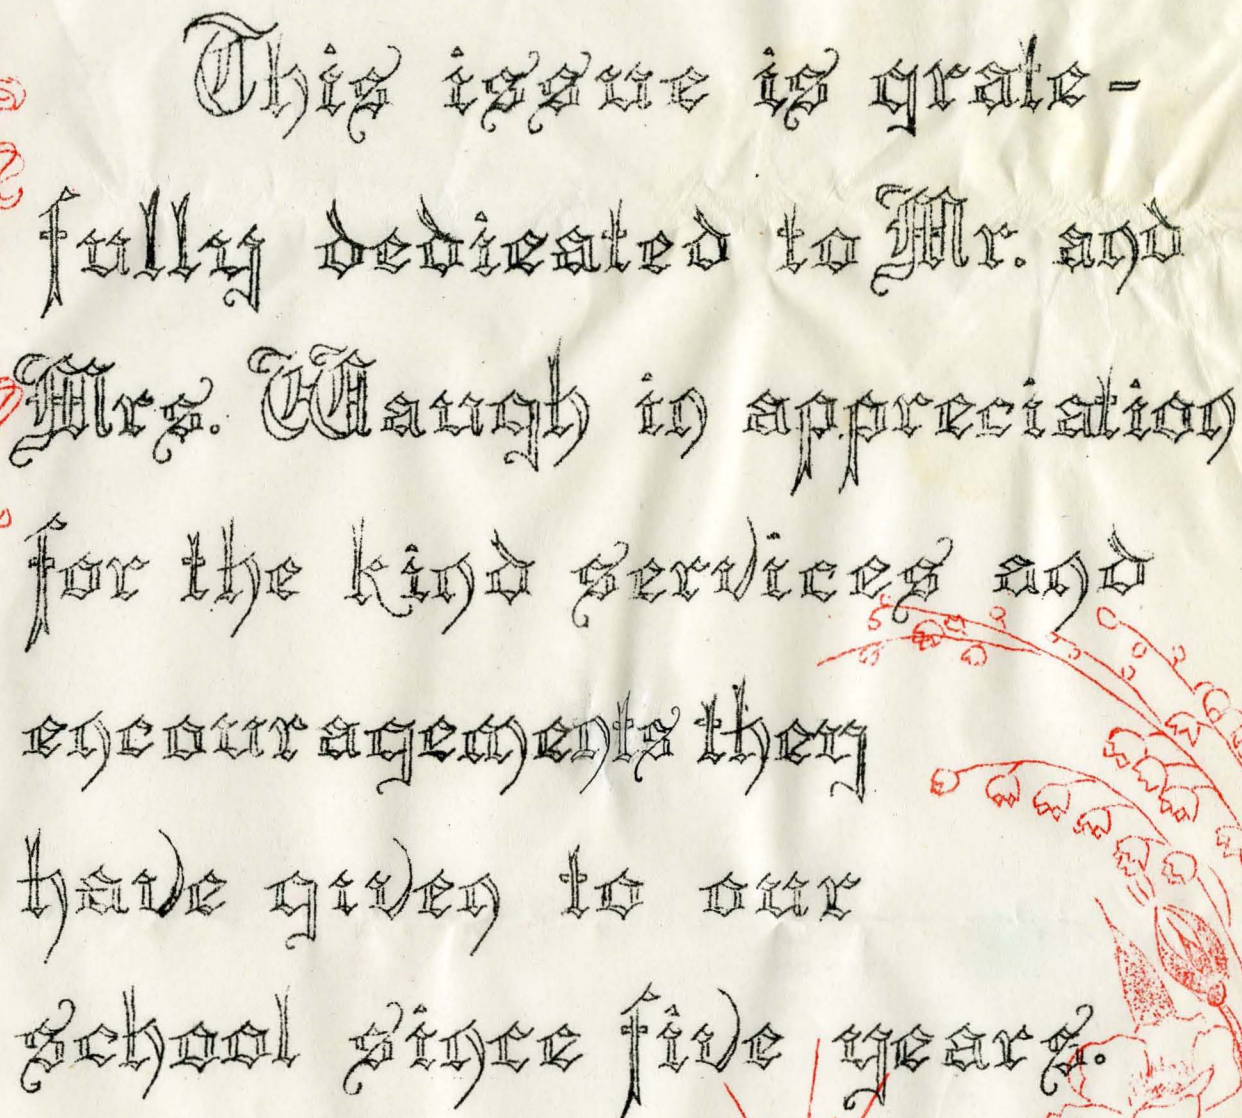 This issue is grate-
fully dedicated to Mr. and
Mrs. Waugh in appreciation
for the kind services and
encouragements they
have given to our
school since five years.